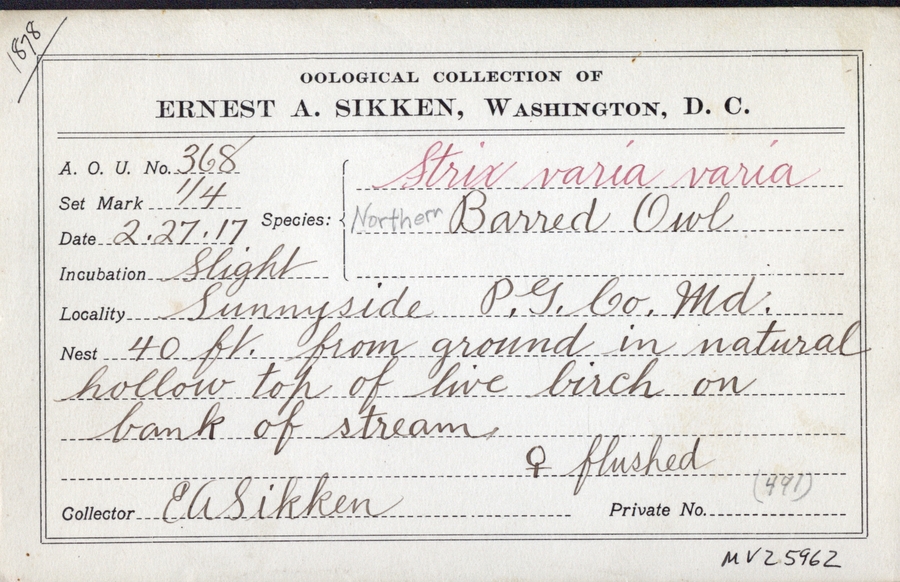 1878
OOLOGICAL COLLECTION OF
ERNEST A. SIKKEN, WASHINGTON, D. C.
A. O. U. No. 368
Set Mark 1/4
Date 2.27.17
Incubation Slight
Species: Strix varia varia
Northern Barred Owl
Locality Sunnyside P.G. Co. Md.
Nest 40 ft. from ground in natural
hollow top of live birch on
bank of stream.
♀ flushed
Collector E A Sikken
Private No. (497)
MVZ 5962